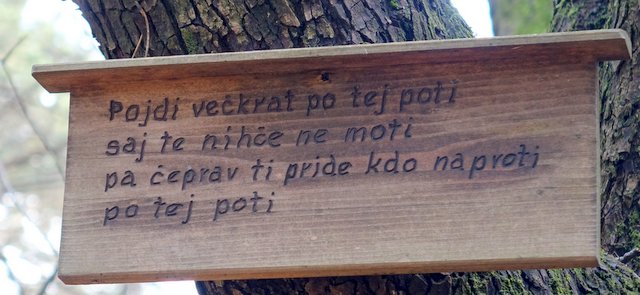 Pojdi večkrat po tej poti
saj te nihče ne moti
pa čeprav ti pride kdo naproti
po tej poti